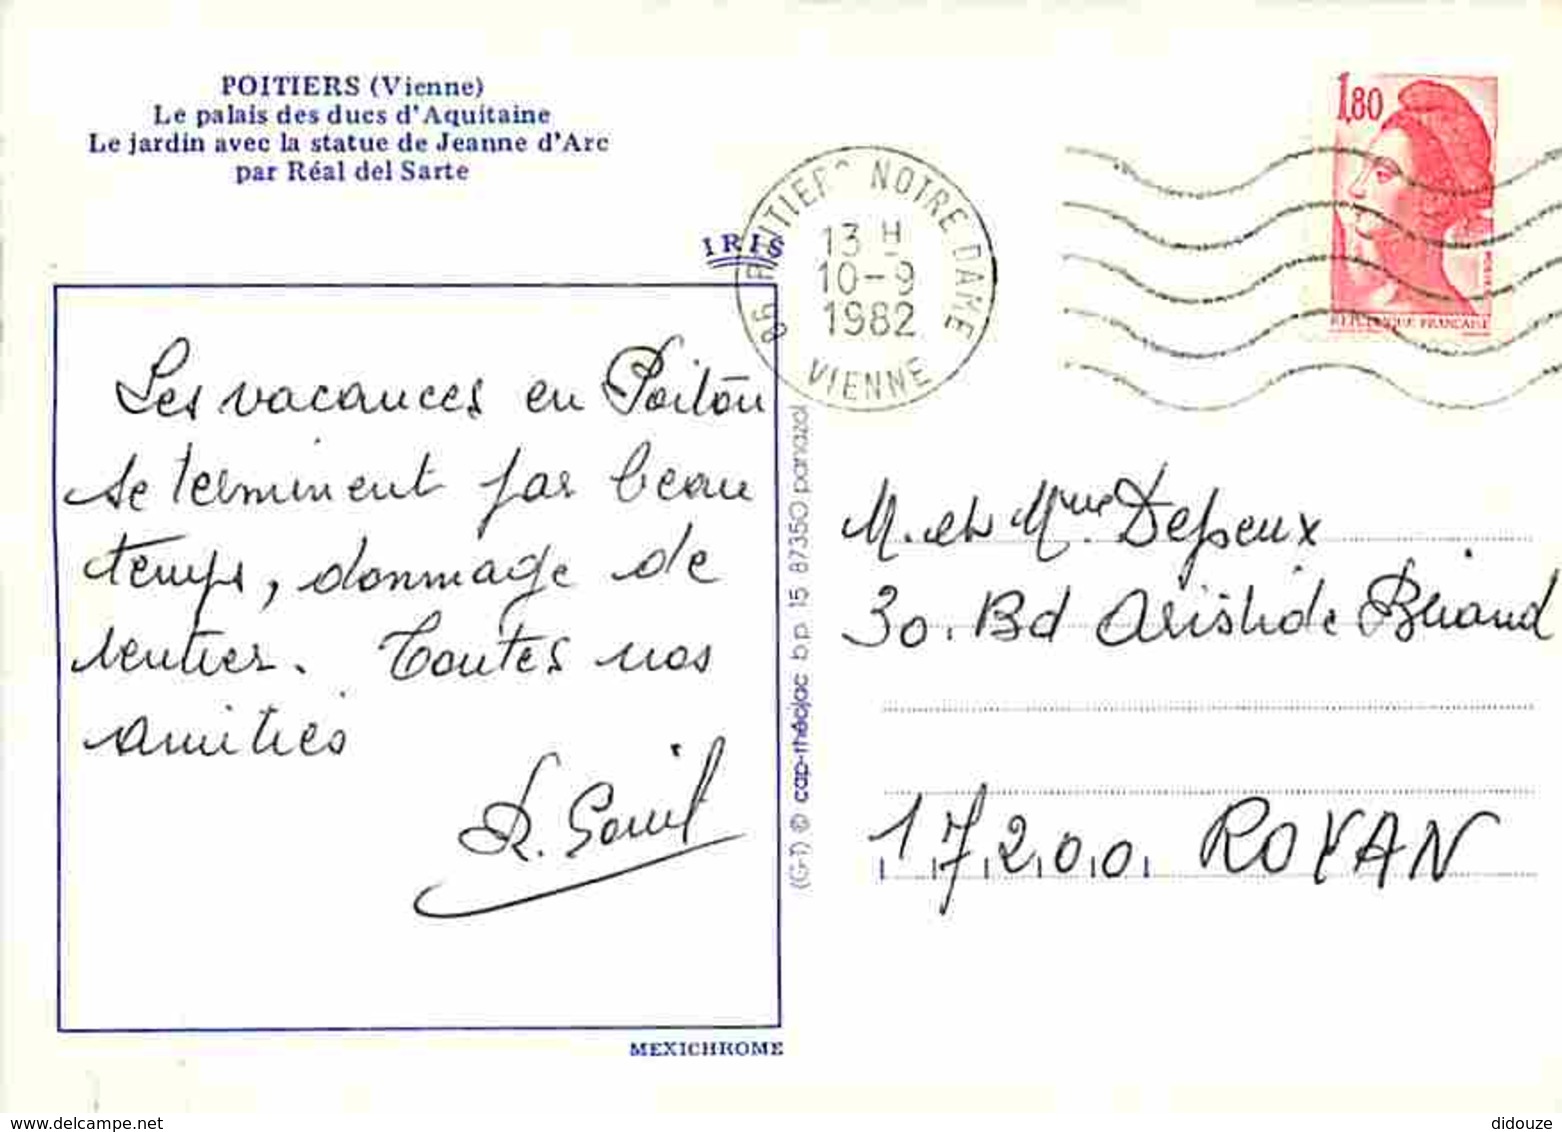 POITIERS (Vienne)
Le palais des ducs d'Aquitaine
Le jardin avec la statue de Jeanne d'Arc
par Réal del Sarte
IRIS
86 POITIERS NOTRE DAME
13 H
10-9
1982
VIENNE
1,80
REPUBLIQUE FRANCAISE
Les vacances en Poitou
se terminent par beau
temps, dommage de
rentrer. Toutes nos
amitiés
MEXICHROME
(G-1) © cap-théojac b.p. 15 87350 panazol
M. et Mme
30. Bd Aristide Briand
17200 ROYAN
www.delcampe.net
didouze